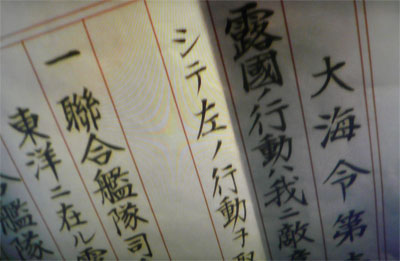 大海令第
露國ノ行動ハ我ニ敵意
シテ左ノ行動ヲ
一聯合艦隊司
東洋ニ在ル露
合艦隊